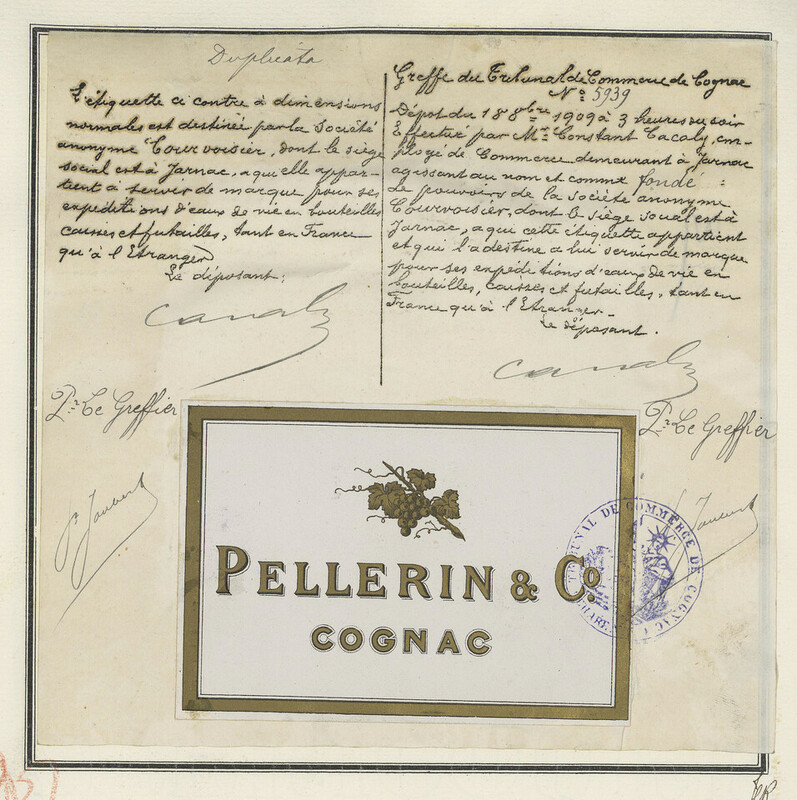 Duplicata
L'étiquette ci contre à dimensions
normales est destinée par la Société
anonyme Courvoisier, dont le siège
social est à Jarnac, a qui elle appar-
tient à servir de marque pour ses
expéditions d'eaux de vie en bouteilles
caisses et futailles, tant en France
qu'à l'Etranger
Le déposant:
Greffe du Tribunal de Commerce de Cognac
No 5939
Dépot du 18 8bre 1909 à 3 heures du soir
Effectué par Mr Constant Cacaly, em-
ployé de Commerce demeurant à Jarnac
agissant au nom et comme fondé
de pouvoirs de la Société anonyme
Courvoisier, dont le siège social est à
Jarnac, a qui cette étiquette appartient
et qui l'a destine a lui servir de marque
pour ses expéditions d'eaux de vie en
bouteilles, caisses et futailles, tant en
France qu'à l'Etranger.
Le déposant.
Pr Le Greffier
Pr Le Greffier
PELLERIN & Co
COGNAC
TRIBUNAL DE COMMERCE DE COGNAC